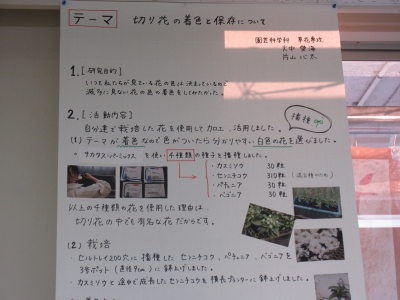 テーマ 切り花の着色と保存について
園芸科学科 草花専攻
1. [研究目的]
いつも私たちが見ている花の色は決まっているので
滅多に見ない花の色の着色をしてみたかった。
2. [活動内容]
自分達で栽培した花を使用して加工、活用しました。
(1) テーマが着色なので色がついたら分かりやすい白色の花を選びました。
播種
を使い4種類の種子を播種しました。
・カスミソウ 30粒
・センニチコウ 310粒
・ペチュニア 30粒
・ベゴニア 30粒
以上の4種類の花を使用した理由は、
切り花の中でも有名な花だからです。
(2) 栽培
・セルトレイ200穴に播種したセンニチコウ、ペチュニア、ベゴニアを
3号ポット(直径9cm)に鉢上げしました。
・カスミソウと途中で成長したセンニチコウを横長プランターに鉢上げしました。